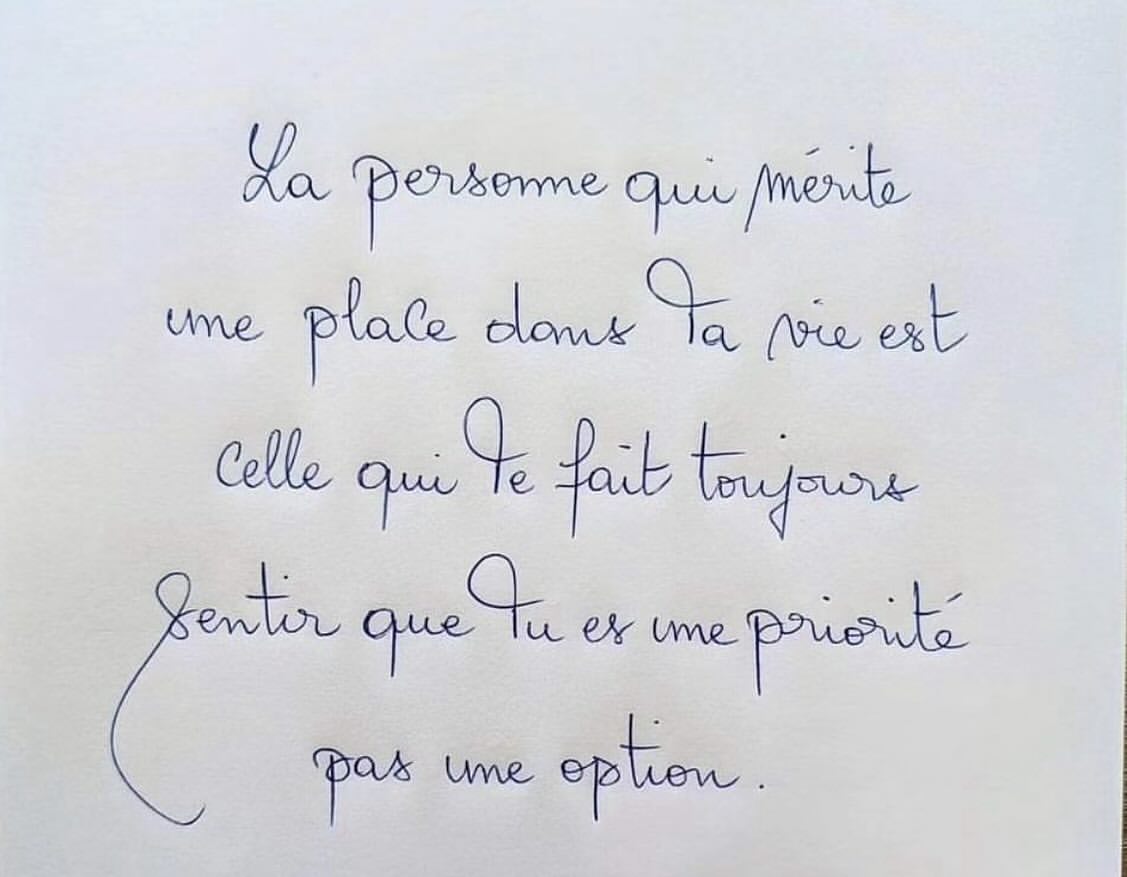 La personne qui mérite
une place dans ta vie est
celle qui te fait toujours
sentir que tu es une priorité
pas une option.